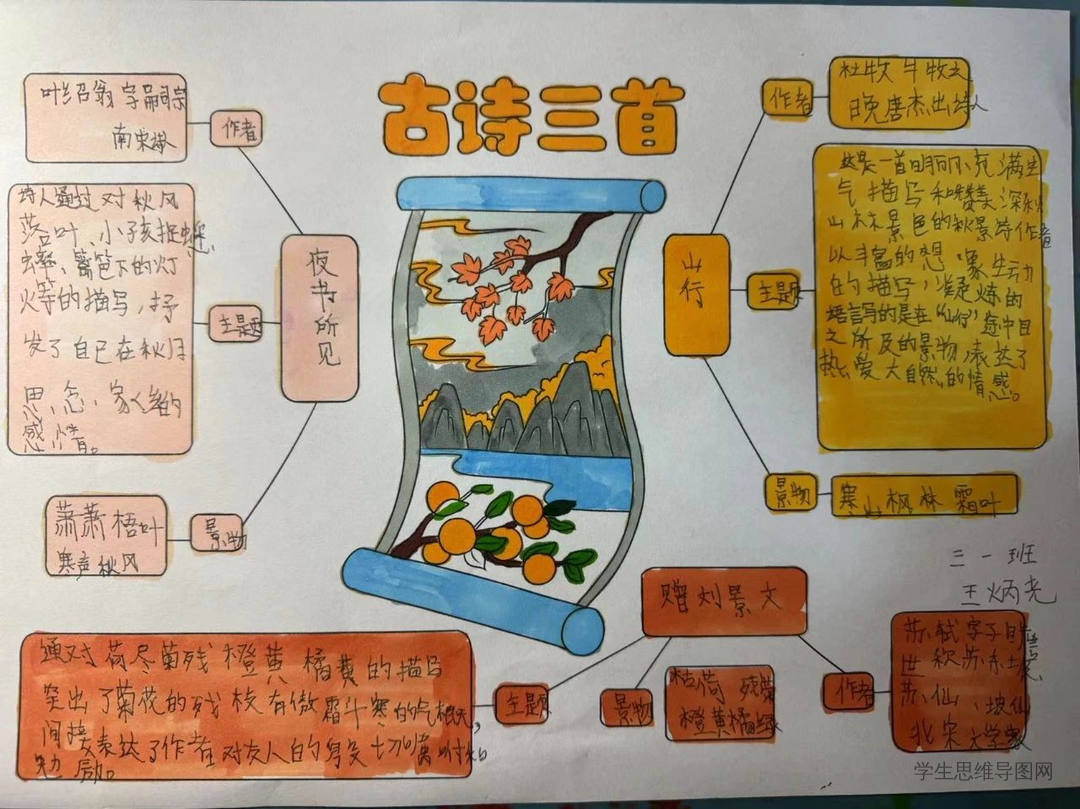 古诗三首
叶绍翁字嗣宗
南宋
作者
诗人通过对秋风
落叶、小孩捉蟋
蟀、篱笆下的灯
火等的描写,抒
发了自己在秋日
思念、家乡的
感情。
主题
夜书所见
萧萧梧叶
寒声秋风
景物
山行
作者
杜牧 牛牧之
晚唐杰出诗人
主题
这是一首明丽、充满生
气描写和赞美深秋
山林景色的秋景诗作者
以丰富的想象生动
的描写,凝炼的
语言写的是在“山行”途中目
之所及的景物,表达了
热爱大自然的情感。
景物
寒山枫林 霜叶
三一班
王炳光
赠刘景文
主题
通对荷尽菊残橙黄橘黄的描写
突出了菊花的残枝有傲霜斗寒的气
间接表达了作者对友人的
勉励。
景物
枯荷 残菊
橙黄橘绿
作者
苏轼字子瞻
世称苏东坡
苏仙、坡仙
北宋文学家
学生思维导图网